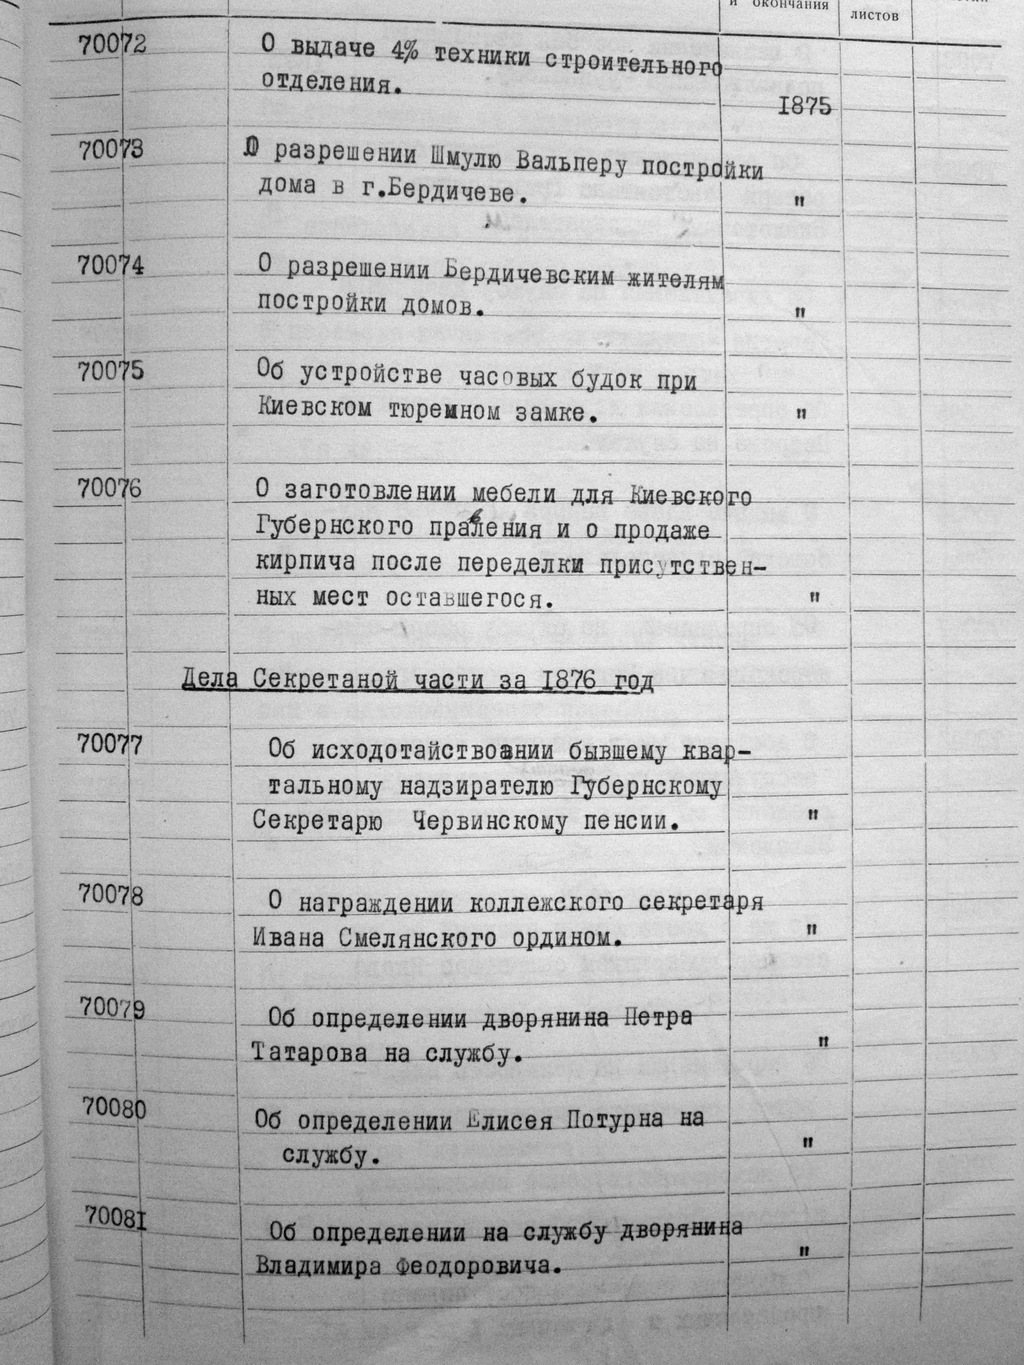 и окончания
листов
70072 О выдаче 4% техники строительного
отделения.
1875
70073 О разрешении Шмулю Вальперу постройки
дома в г.Бердичеве. "
70074 О разрешении Бердичевским жителям
постройки домов. "
70075 Об устройстве часовых будок при
Киевском тюремном замке. "
70076 О заготовлении мебели для Киевского
Губернского правления и о продаже
кирпича после переделки присутствен-
ных мест оставшегося. "
Дела Секретаной части за 1876 год
70077 Об исходотайствоании бывшему квар-
тальному надзирателю Губернскому
Секретарю Червинскому пенсии. "
70078 О награждении коллежского секретаря
Ивана Смелянского ордином. "
70079 Об определении дворянина Петра
Татарова на службу. "
70080 Об определении Елисея Потурна на
службу. "
70081 Об определении на службу дворянина
Владимира Феодоровича. "